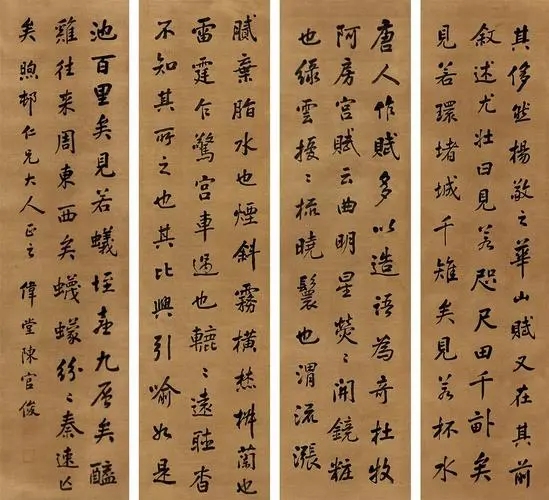 其侈然楊敬之華山賦又在其前
敘述尤壯曰見若咫尺田千畝矣
見若環堵城千雉矣見若杯水
唐人作賦多以造語為奇杜牧
阿房宮賦云曲明星熒〻開鏡粧
也綠雲擾〻梳曉鬟也渭流漲
膩棄脂水也煙斜霧橫焚椒蘭也
雷霆乍驚宮車過也轆〻遠聽杳
不知其所之也其比興引喻如是
池百里矣見若蟻垤臺九層矣醯
雞往來周東西矣蠛蠓紛〻秦速亡
矣煦邨仁兄大人正之 偉堂陳官俊